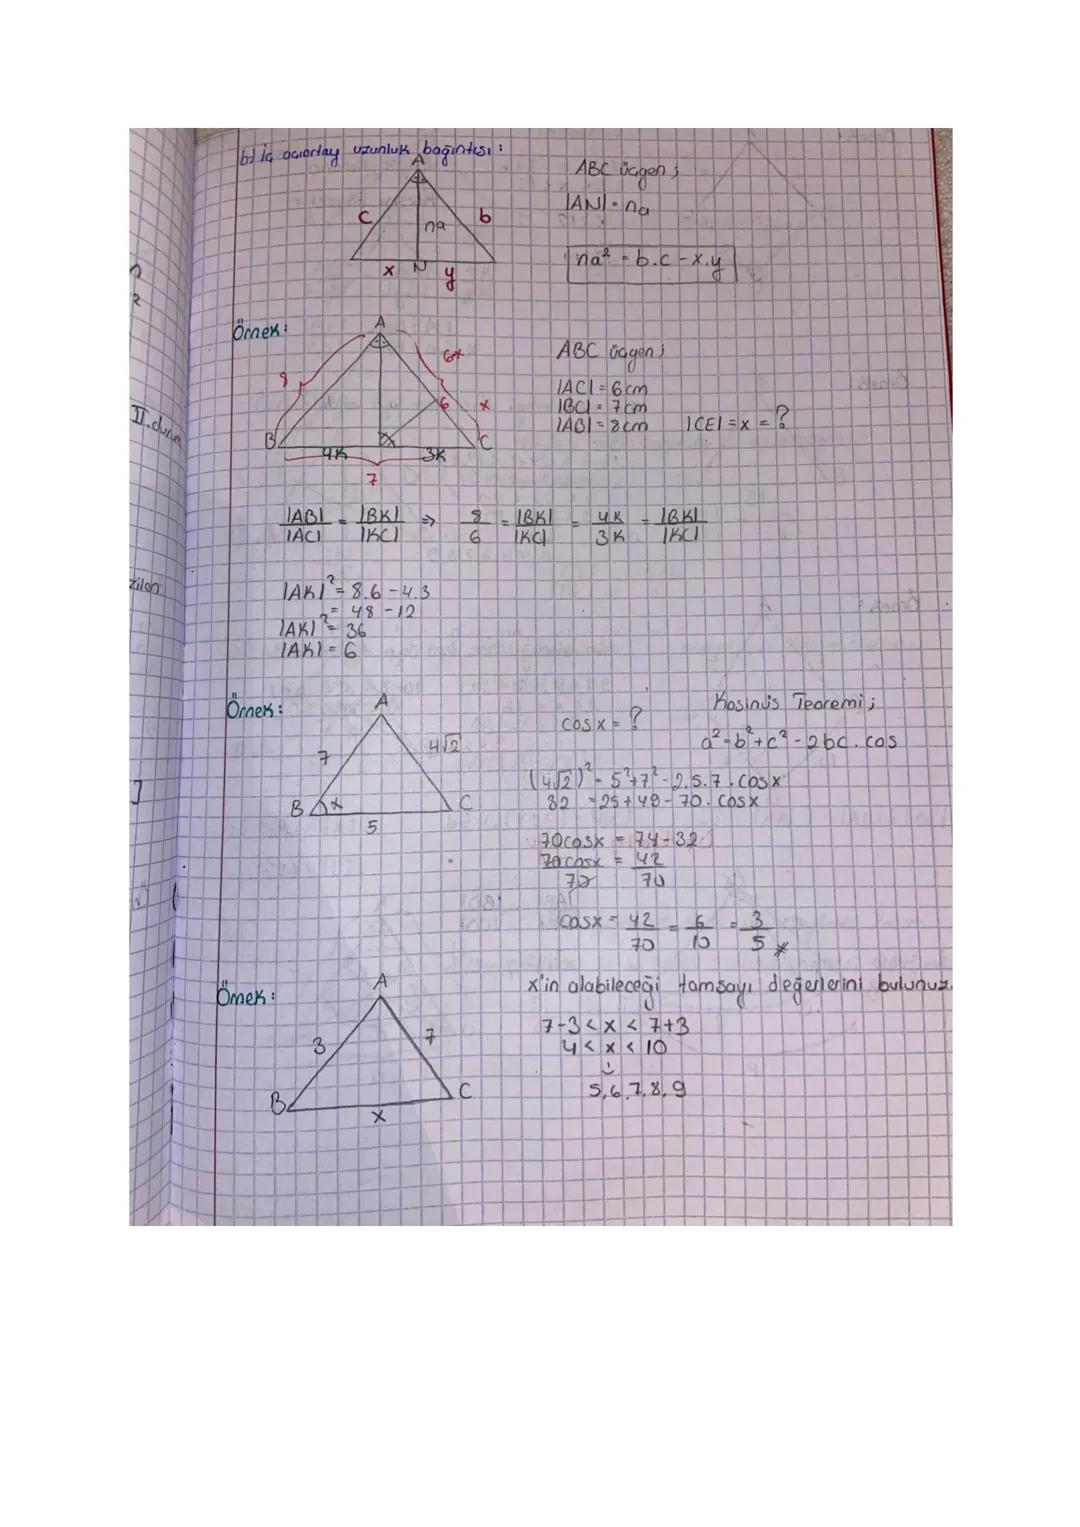 b) İç açıortay uzunluk bağıntısı :
A
c
b
na
x
N
y
ABC üçgen ;
|AN| = na
na² = b.c - x.y
Örnek :
A
8
6-x
6
x
B
C
4K
3K
7
ABC üçgen ;
|AC| = 6cm
|BC| = 7cm
|AB| = 8cm |CE| = x = ?
II. durum
|AB| / |AC| = |BK| / |KC| ⇒ 8/6 = |BK| / |KC| = 4K/3K = |BK| / |KC|
|AK|² = 8.6 - 4.3
= 48 - 12
|AK|² = 36
|AK| = 6
Örnek :
A
7
4√2
B
x
C
5
cos x = ?
Kosinüs Teoremi ;
a² = b² + c² - 2bc . cos
(4√2)² = 5² + 7² - 2.5.7 . cosx
32 = 25 + 49 - 70 . cosx
70cosx = 74 - 32
70cosx / 70 = 42 / 70
cosx = 42/70 = 6/10 = 3/5
Örnek :
A
3
7
B
C
x
x'in alabileceği tamsayı değerlerini bulunuz.
7-3 < x < 7+3
4 < x < 10
5, 6, 7, 8, 9